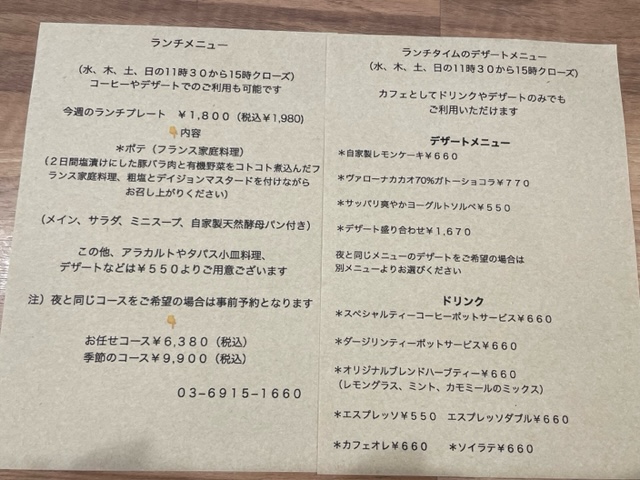 ランチメニュー
（水、木、土、日の11時３０から15時クローズ）
コーヒーやデザートでのご利用も可能です
今週のランチプレート　￥１,８００（税込￥1,980）
👇内容
＊ポテ（フランス家庭料理）
（２日間塩漬けにした豚バラ肉と有機野菜をコトコト煮込んだフ
ランス家庭料理、粗塩とデイジョンマスタードを付けながら
お召し上がりください）
（メイン、サラダ、ミニスープ、自家製天然酵母パン付き）
この他、アラカルトやタパス小皿料理、
デザートなどは￥５５０よりご用意ございます
注）夜と同じコースをご希望の場合は事前予約となります
👇
お任せコース￥６,３８０（税込）
季節のコース￥９,９００（税込）
０３−６９１５−１６６０
ランチタイムのデザートメニュー
（水、木、土、日の11時３０から15時クローズ）
カフェとしてドリンクやデザートのみでも
ご利用いただけます
デザートメニュー
＊自家製レモンケーキ￥６６０
＊ヴァローナカカオ70%ガトーショコラ￥７７０
＊サッパリ爽やかヨーグルトソルベ￥５５０
＊デザート盛り合わせ￥１,６７０
夜と同じメニューのデザートをご希望の場合は
別メニューよりお選びください
ドリンク
＊スペシャルティーコーヒーポットサービス￥６６０
＊ダージリンティーポットサービス￥６６０
＊オリジナルブレンドハーブティー￥６６０
（レモングラス、ミント、カモミールのミックス）
＊エスプレッソ￥５５０　エスプレッソダブル￥６６０
＊カフェオレ￥６６０　＊ソイラテ￥６６０